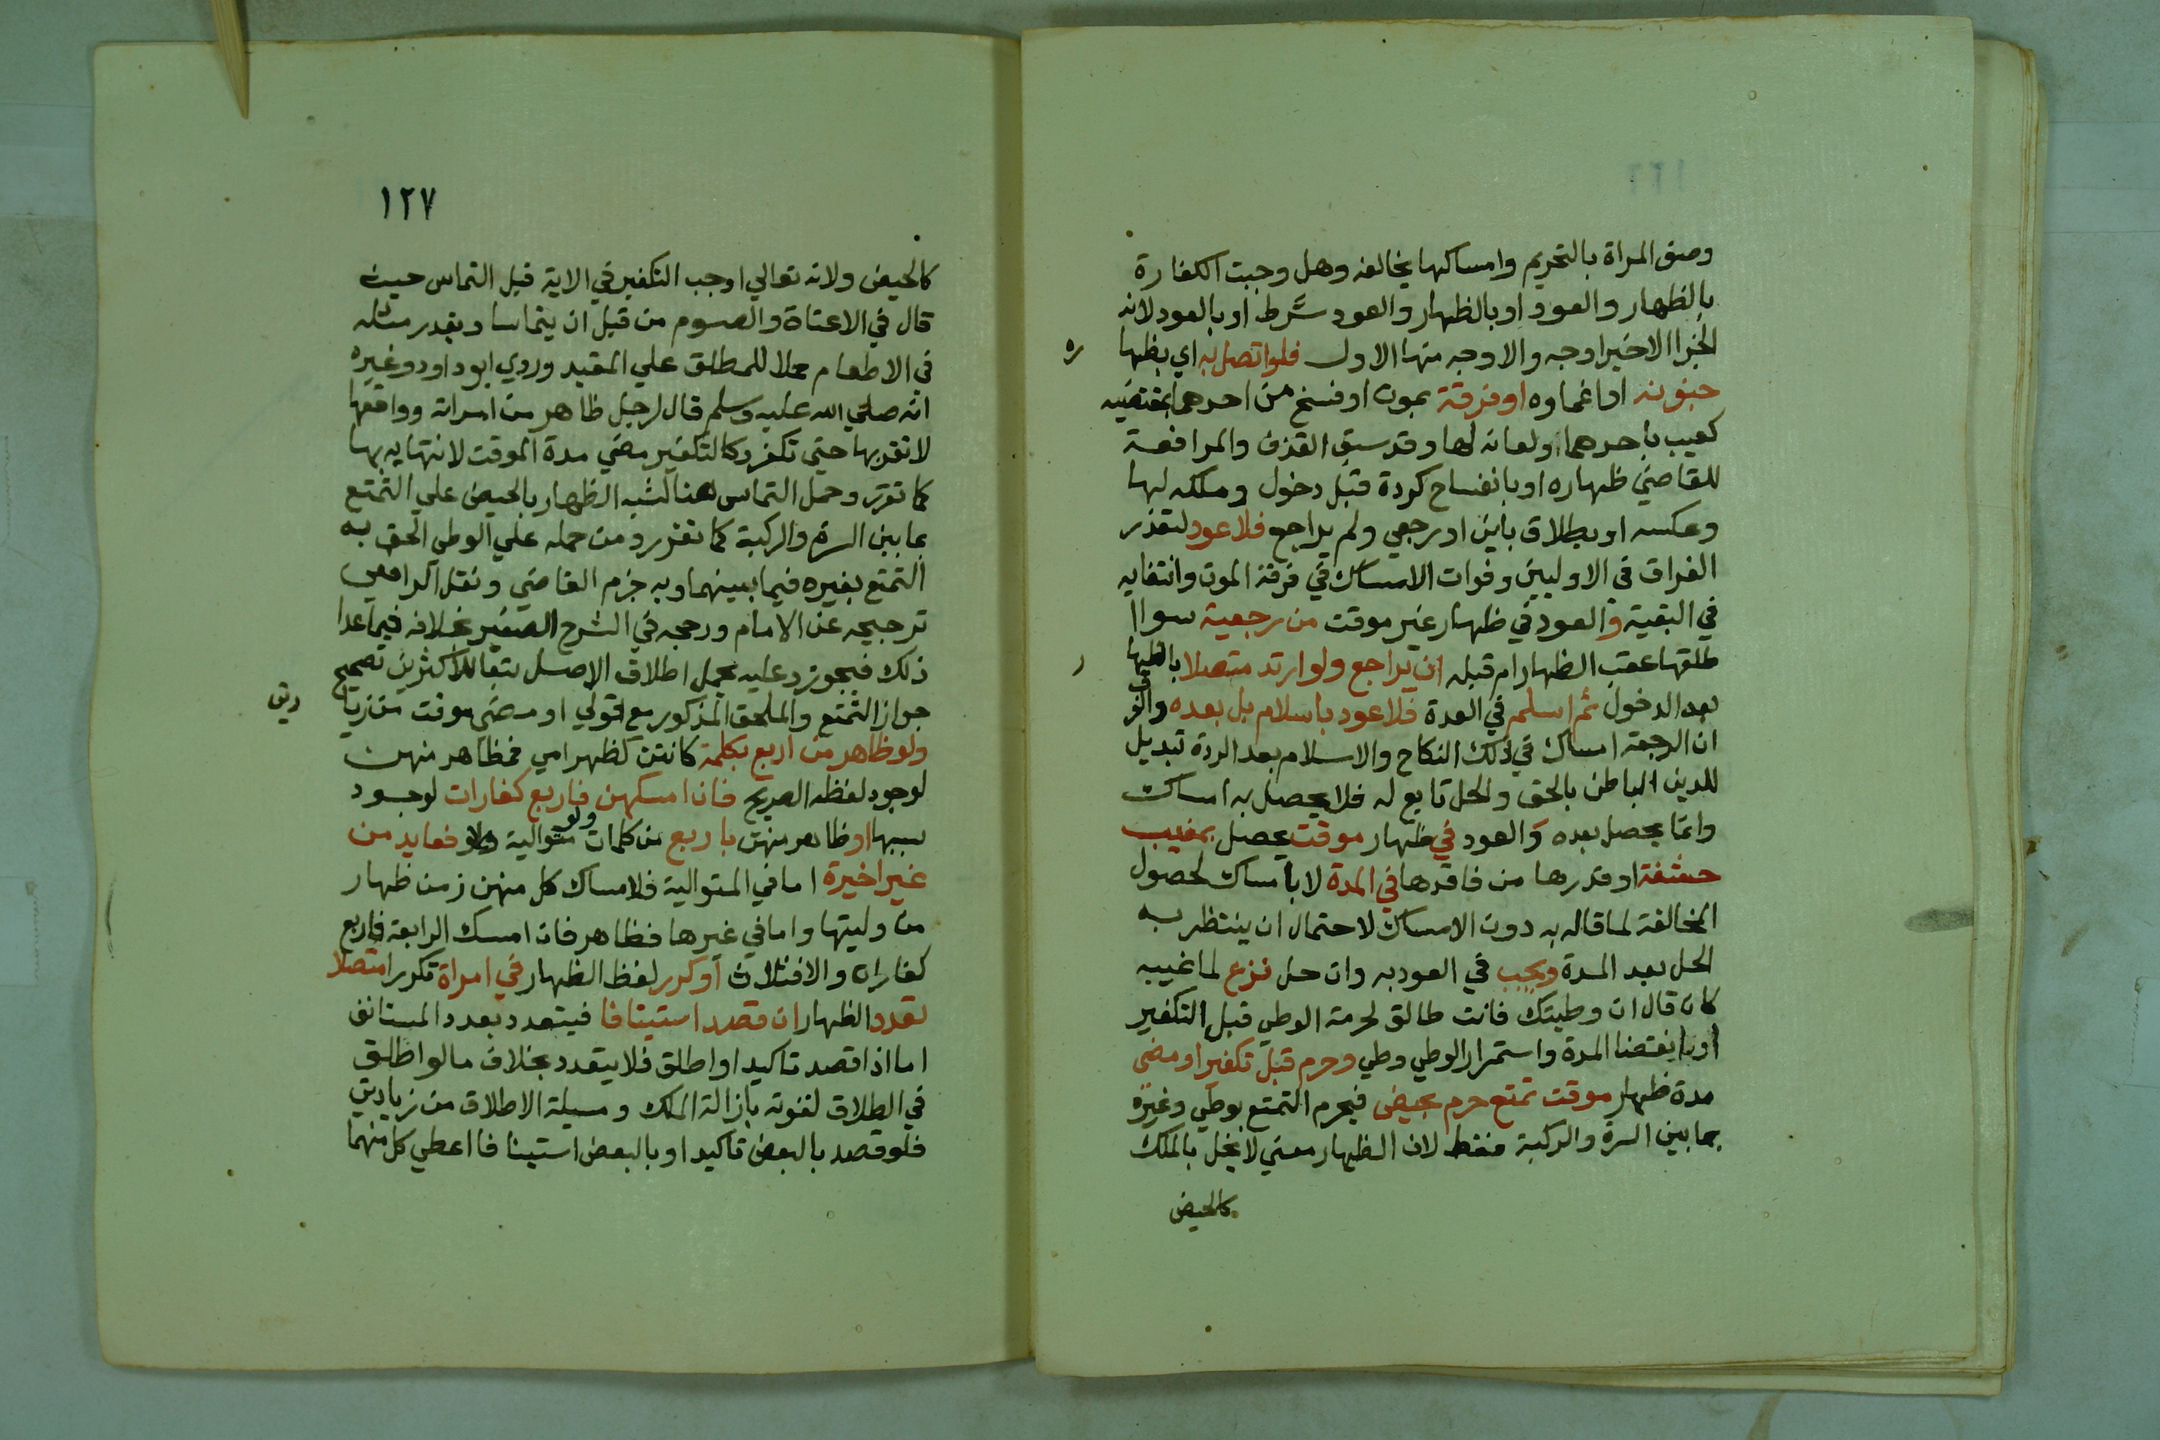 وصف المراة بالتحريم وامساكها يخالفه وهل وجبت الكفارة
بالظهار والعود او بالظهار والعود شرط او بالعود لانه
الجزا الاخير اوجه والاوجه منها الاول فلو اتصل به اي بظها
ره
جنونه او اغماوه او فرقة بموت او فسخ من احدهما بمقتضيه
كعيب باحدهما او لعانه لها وقد سبق القذف والمرافعة
للقاضي ظهاره او بانفساخ كردة قبل دخول وملكه لها
وعكسه او بطلاق باين او رجعي ولم يراجع فلا عود لتعذر
الفراق في الاوليين وفوات الامساك في فرقة الموت وانتفايه
في البقية والعود في ظهار غير موقت من رجعية سوا
طلقها عقب الظهار ام قبله ان يراجع ولو ارتد متصلا بالظها
ر
بعد الدخول ثم اسلم في العدة فلا عود باسلام بل بعده والفرق
ان الرجعة امساك في ذلك النكاح والاسلام بعد الردة تبديل
للدين الباطل بالحق والحل تابع له فلا يحصل به امساك
وانما يحصل بعده والعود في ظهار موقت يحصل بمغيب
حشفة او قدرها من فاقدها في المدة لا بامساك لحصول
المخالفة لما قاله به دون الامساك لاحتمال ان ينتظر به
الحل بعد المدة ويجب في العود به وان حل نزع لما غيبه
كان قال ان وطيتك فانت طالق لحرمة الوطي قبل التكفير
او بانقضا المدة واستمرار الوطي وطي وحرم قبل تكفير او مضى
مدة ظهار موقت تمتع حرم بحيض فيحرم التمتع بوطي وغيره
بما بين السرة والركبة فقط لان الظهار معني لا يخل بالملك
كالحيض
١٢٧
كالحيض ولانه تعالي اوجب التكفير في الاية قبل التماس حيث
قال في الاعتاق والصوم من قبل ان يتماسا ويقدر مثله
في الاطعام حملا للمطلق علي المقيد وروي ابو داود وغيره
انه صلي الله عليه وسلم قال لرجل ظاهر من امراته وواقعها
لا تقربها حتي تكفر وكالتكفير مضي مدة الموقت لانتهايه بها
كما تقرر وحمل التماس هنا لشبه الظهار بالحيض علي التمتع
بما بين السرة والركبة كما تقرر ومن حمله علي الوطي الحق به
التمتع بغيره فيما بينهما وبه جزم القاضي ونقل الرافعي
ترجيحه عن الامام ورجحه في الشرح الصغير بخلافه فيما عدا
ذلك فيجوز وعليه يحمل اطلاق الاصل تبعا للاكثرين تصحيح
جواز التمتع والملحق المذكور مع قولي او مضى موقت من زيا
دتي
ولو ظاهر من اربع بكلمة كانتن كظهر امي فمظاهر منهن
لوجود لفظه الصريح فان امسكهن فاربع كفارات لوجود
سببها او ظاهر منهن باربع من كلمات ولو متوالية فعايد من
غير اخيرة اما في المتوالية فلامساك كل منهن زمن ظهار
من وليتها واما في غيرها فظاهر فان امسك الرابعة فاربع
كفارات والا فثلاث او كرر لفظ الظهار في امراة تكررا متصلا
تعدد الظهار ان قصد استينافا فيتعدد بعدد المستانف
اما اذا قصد تاكيدا او اطلق فلا يتعدد بخلاف ما لو اطلق
في الطلاق لقوته بازالة الملك ومسيلة الاطلاق من زيادتي
فلو قصد بالبعض تاكيدا وبالبعض استينافا اعطي كل منهما